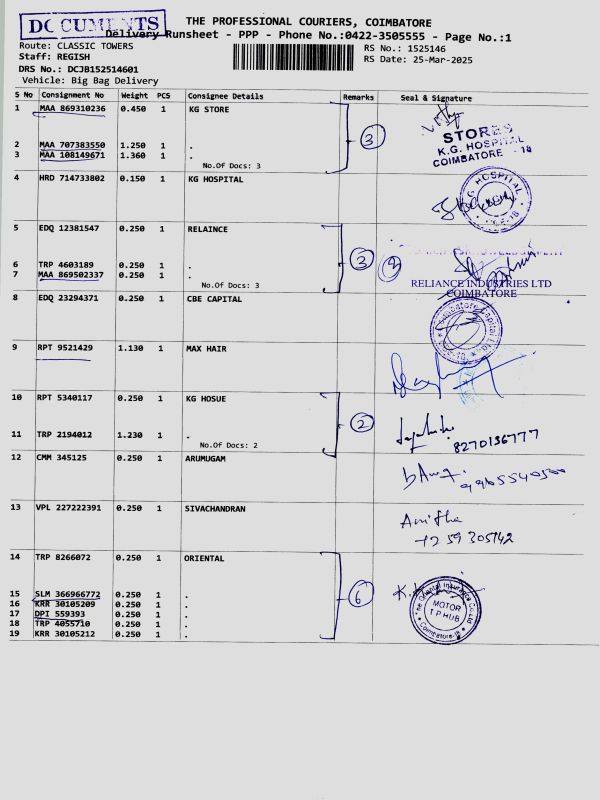 DOCUMENTS
THE PROFESSIONAL COURIERS, COIMBATORE
Delivery Runsheet - PPP - Phone No.:0422-3505555 - Page No.:1
Route: CLASSIC TOWERS
Staff: REGISH
RS No.: 1525146
DRS No.: DCJB152514601
RS Date: 25-Mar-2025
Vehicle: Big Bag Delivery
S No Consignment No Weight PCS Consignee Details Remarks Seal & Signature
1 MAA 869310236 0.450 1 KG STORE
3
STORES
K.G. HOSPITAL
COIMBATORE - 18
2 MAA 707383550 1.250 1 .
3 MAA 108149671 1.360 1 .
No.Of Docs: 3
4 HRD 714733802 0.150 1 KG HOSPITAL
5 EDQ 12381547 0.250 1 RELAINCE
3
6 TRP 4603189 0.250 1 .
7 MAA 869502337 0.250 1 .
No.Of Docs: 3
RELIANCE INDUSTRIES LTD
COIMBATORE
8 EDQ 23294371 0.250 1 CBE CAPITAL
9 RPT 9521429 1.130 1 MAX HAIR
10 RPT 5340117 0.250 1 KG HOSUE
2
8270136777
11 TRP 2194012 1.230 1 .
No.Of Docs: 2
12 CMM 345125 0.250 1 ARUMUGAM
13 VPL 227222391 0.250 1 SIVACHANDRAN
Anitha
14 TRP 8266072 0.250 1 ORIENTAL
6
The Oriental Insurance Co.Ltd
MOTOR
T P HUB
Coimbatore-18
15 SLM 366966772 0.250 1 .
16 KRR 30105209 0.250 1 .
17 DPI 559393 0.250 1 .
18 TRP 4055710 0.250 1 .
19 KRR 30105212 0.250 1 .